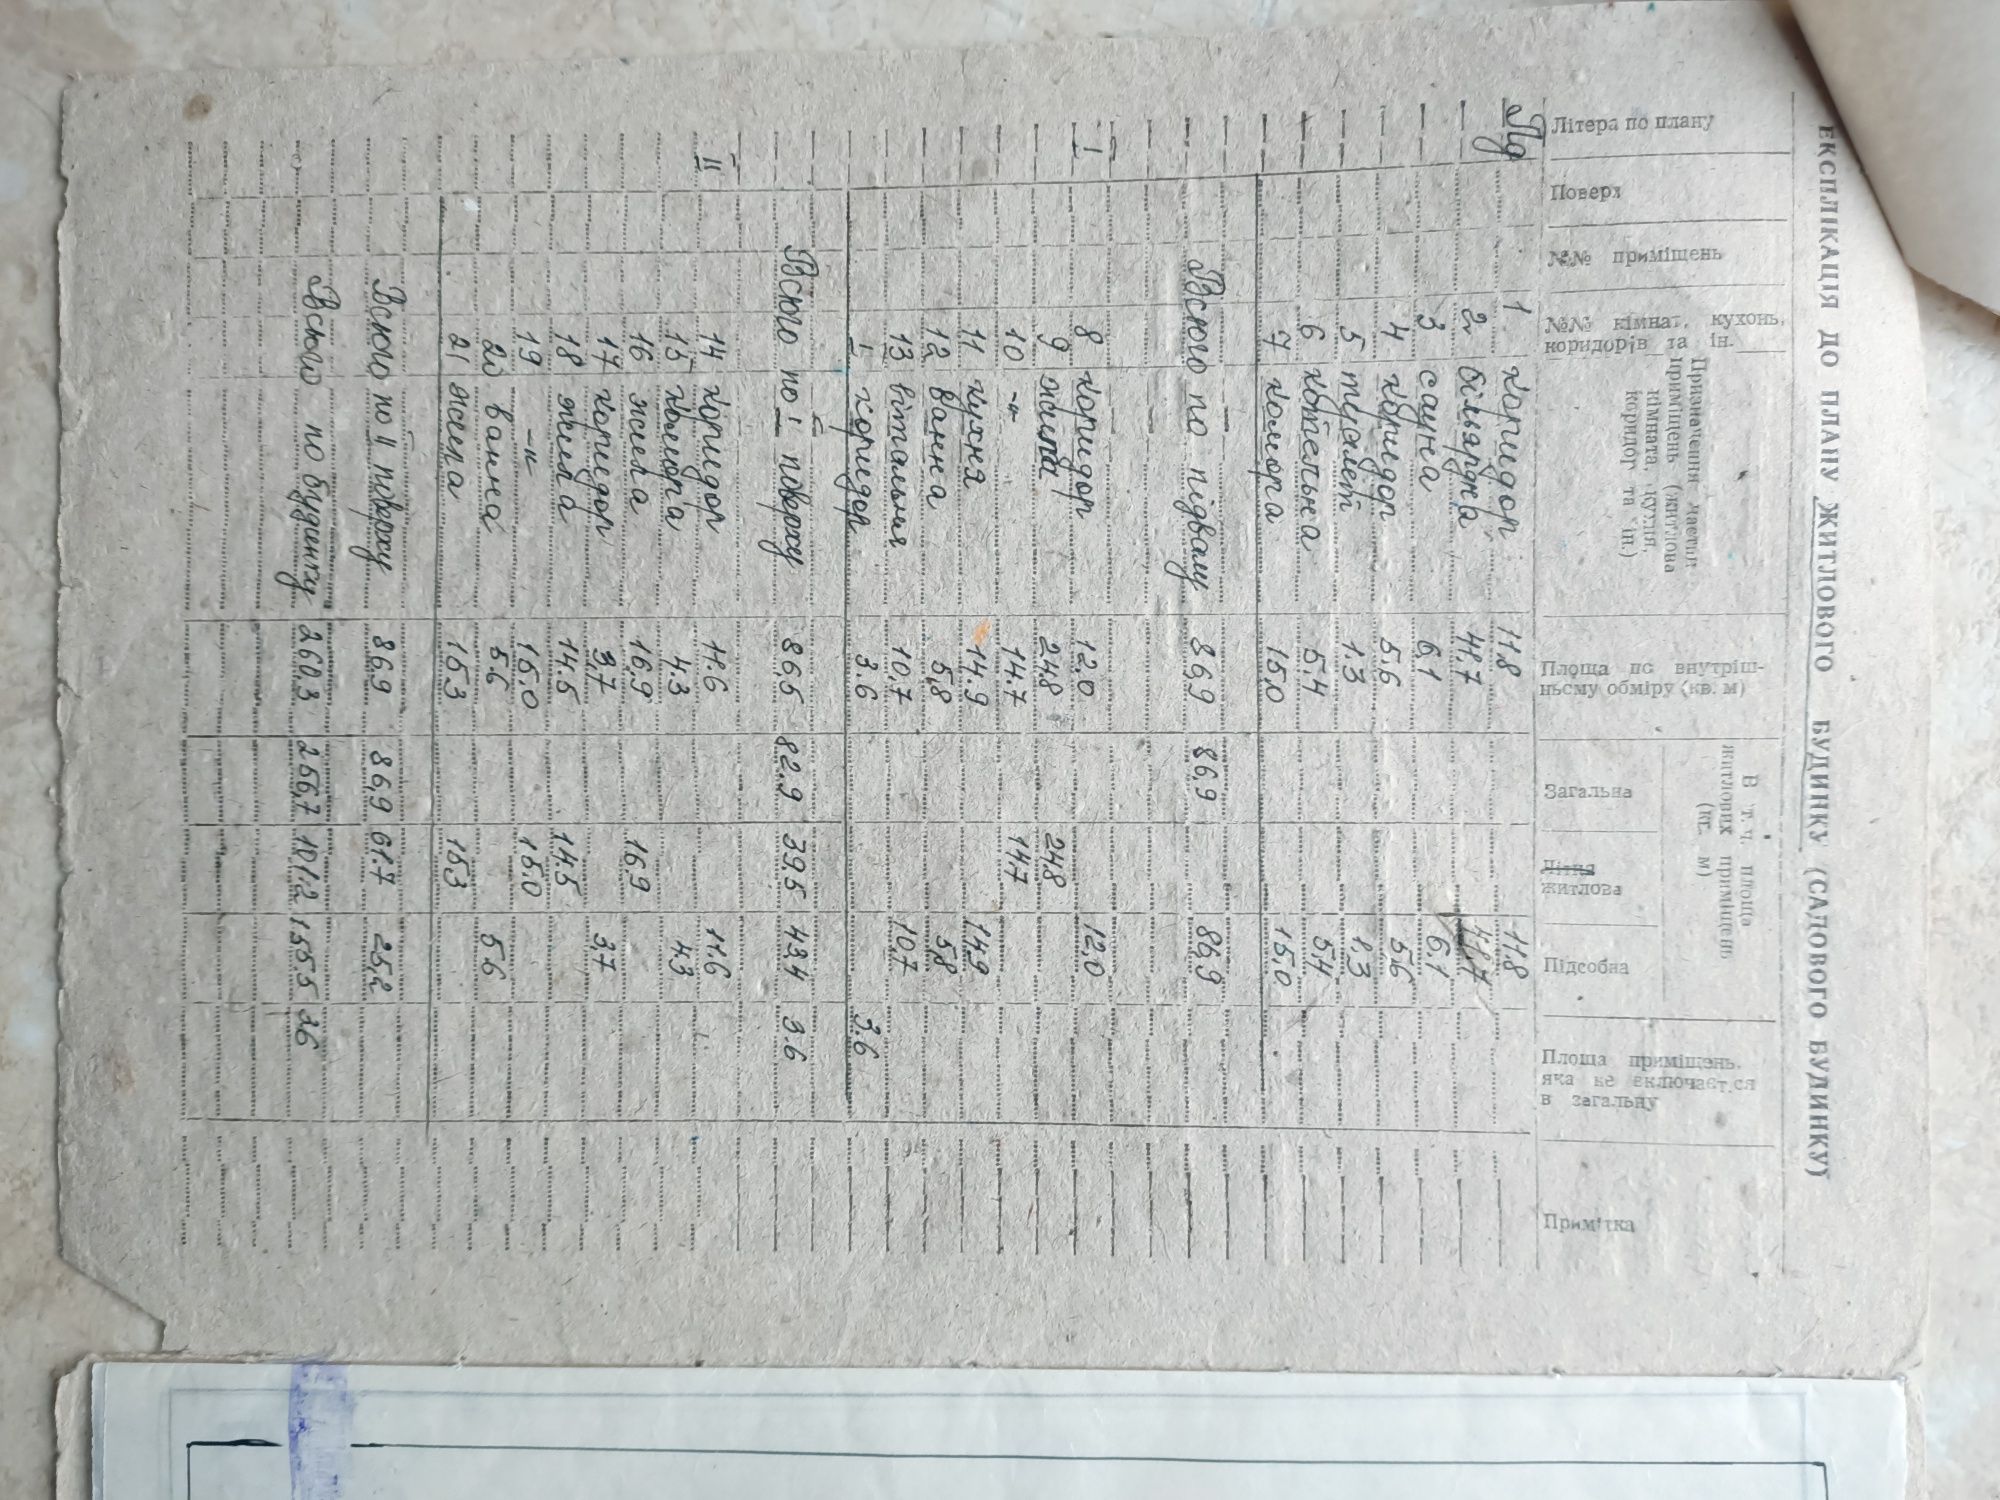 ЕКСПЛІКАЦІЯ ДО ПЛАНУ ЖИТЛОВОГО БУДИНКУ (САДОВОГО БУДИНКУ)
Літера по плану
Поверх
№№ приміщень
№№ кімнат, кухонь,
коридорів та ін.
Призначення частин
приміщень (житлова
кімната, кухня,
коридог та ін)
Площа по внутріш-
ньому обміру (кв. м)
В т. ч. площа
житлових приміщень
(кв. м)
Загальна
Літня
житлова
Підсобна
Площа приміщень,
яка не включаєт.ся
в загальну
Примітка
Пд 1 коридор 11.8 11.8
2 більярдна 41,7 41,7
3 сауна 6,1 6.1
4 коридор 5.6 5.6
5 туалет 1.3 1,3
6 котельна 5.4 5,4
7 комора 15,0 15.0
Всього по підвалу 86,9 86,9 86,9
I 8 коридор 12,0 12,0
9 жила 24.8 24.8
10 -"- 14.7 14,7
11 кухня 14.9 14,9
12 ванна 5,8 5,8
13 вітальня 10,7 10,7
I коридор 3.6 3.6
Всього по I поверху 86,5 82.9 39.5 43.4 3.6
II 14 коридор 11.6 11.6
15 комора 4.3 4.3
16 жила 16,9 16,9
17 коридор 3,7 3,7
18 жила 14.5 14.5
19 -"- 15,0 15.0
20 ванна 5.6 5.6
21 жила 15.3 15.3
Всього по II поверху 86.9 86,9 61.7 25,2
Всього по будинку 260,3 256,7 101.2 155.5 3.6